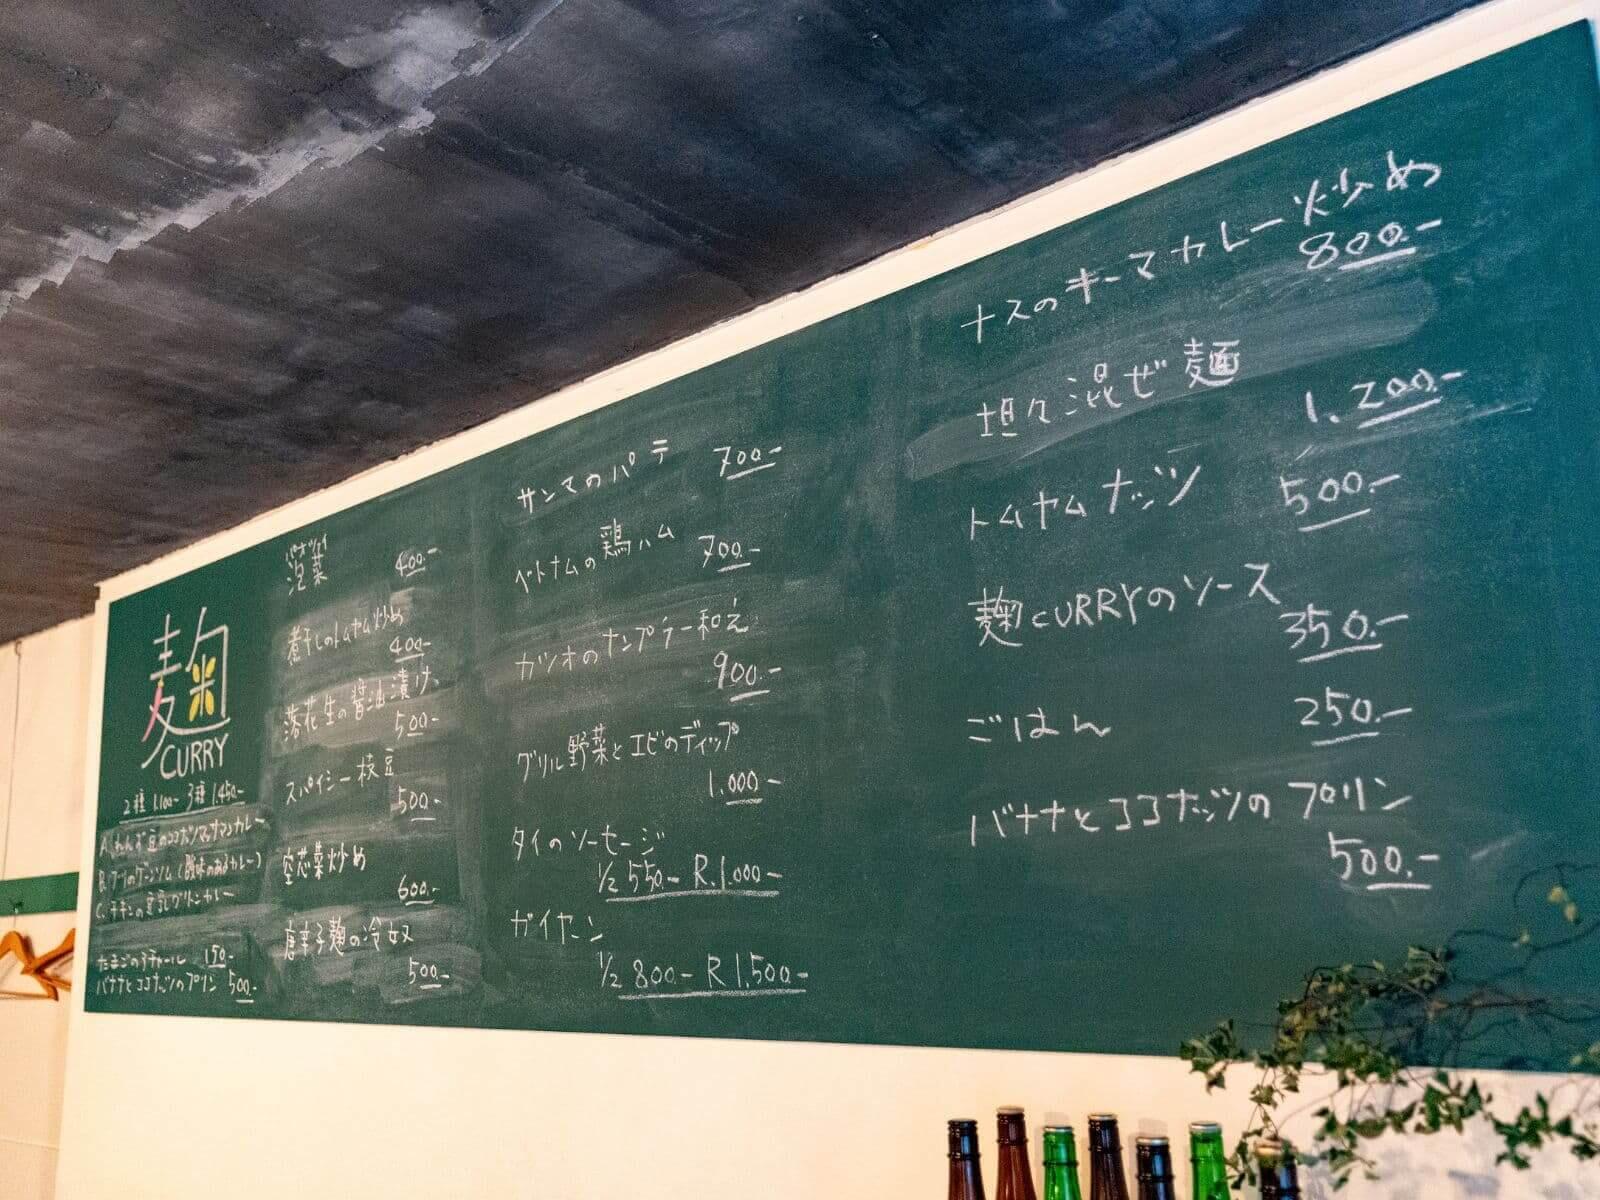 麹
CURRY
2種 1.100- 3種 1.450-
A. れんず豆のココナツマッサマンカレー
B. ブリのゲーンソム(酸味のあるカレー)
C. チキンの豆乳グリーンカレー
たまごのアチャール 150-
バナナとココナッツのプリン 500.-
パオツァイ
泡菜
400.-
煮干しのトムヤム炒め
400.-
落花生の醤油漬け
500-
スパイシー枝豆
500.-
空芯菜炒め
600.-
唐辛子麹の冷奴
500.-
サンマのパテ 700-
ベトナムの鶏ハム
700.-
カツオのナンプラー和え
900.-
グリル野菜とエビのディップ
1.000-
タイのソーセージ
1/2 550- R.1.000-
ガイヤーン
1/2 800- R 1.500-
ナスのキーマカレー炒め
800.-
坦々混ぜ麺
1.200.-
トムヤムナッツ
500.-
麹CURRYのソース
350.-
ごはん
250.-
バナナとココナッツのプリン
500.-